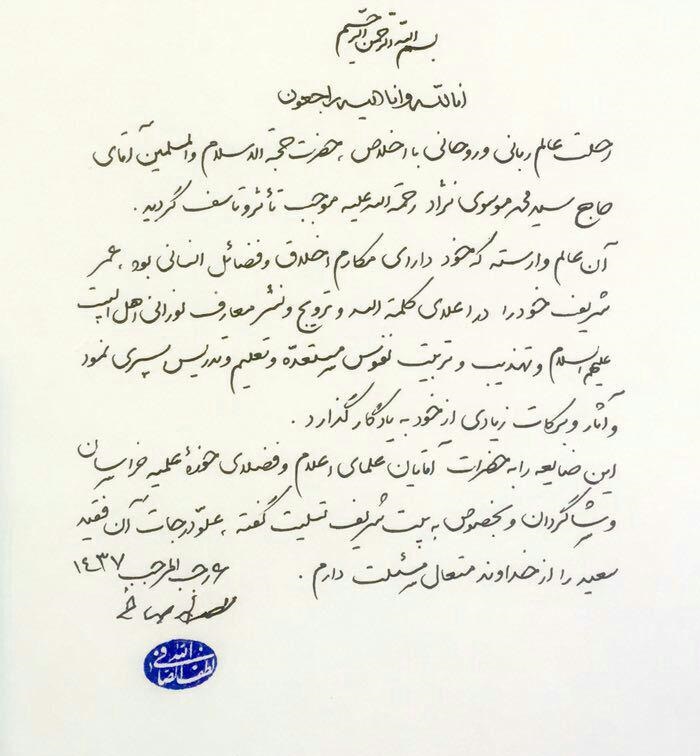 بسم الله الرحمن الرحیم
انا لله و انا الیه راجعون
رحلت عالم ربانی و روحانی با اخلاص، حضرت حجة الاسلام والمسلمین آقای
حاج سید محمد موسوی نژاد رحمة الله علیه موجب تأثر و تأسف گردید.
آن عالم وارسته که خود دارای مکارم اخلاق و فضائل انسانی بود، عمر
شریف خود را در اعلای کلمة الله و ترویج و نشر معارف نورانی اهل البیت
علیهم السلام و تهذیب و تربیت نفوس مستعدّه و تعلیم و تدریس سپری نمود
و آثار و برکات زیادی از خود به یادگار گذارد.
این ضایعه را به حضرات آقایان علمای اعلام و فضلای حوزهٔ علمیه خراسان
و شاگردان و بخصوص به بیت شریف تسلیت گفته، علوّ درجات آن فقید
سعید را از خداوند متعال مسئلت دارم.
رجب المرجب ١٤٣٧
لطف الله صافی
لطف الله الصافی